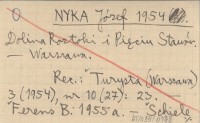 O NYKA Józef 1954
Dolina Roztoki i Pięciu Stawów.
— Warszawa.
Rec.: "Turysta (Warszawa)
3 (1954), nr 10 (27): 23. —
Ferens B. 1955a. — Schiele